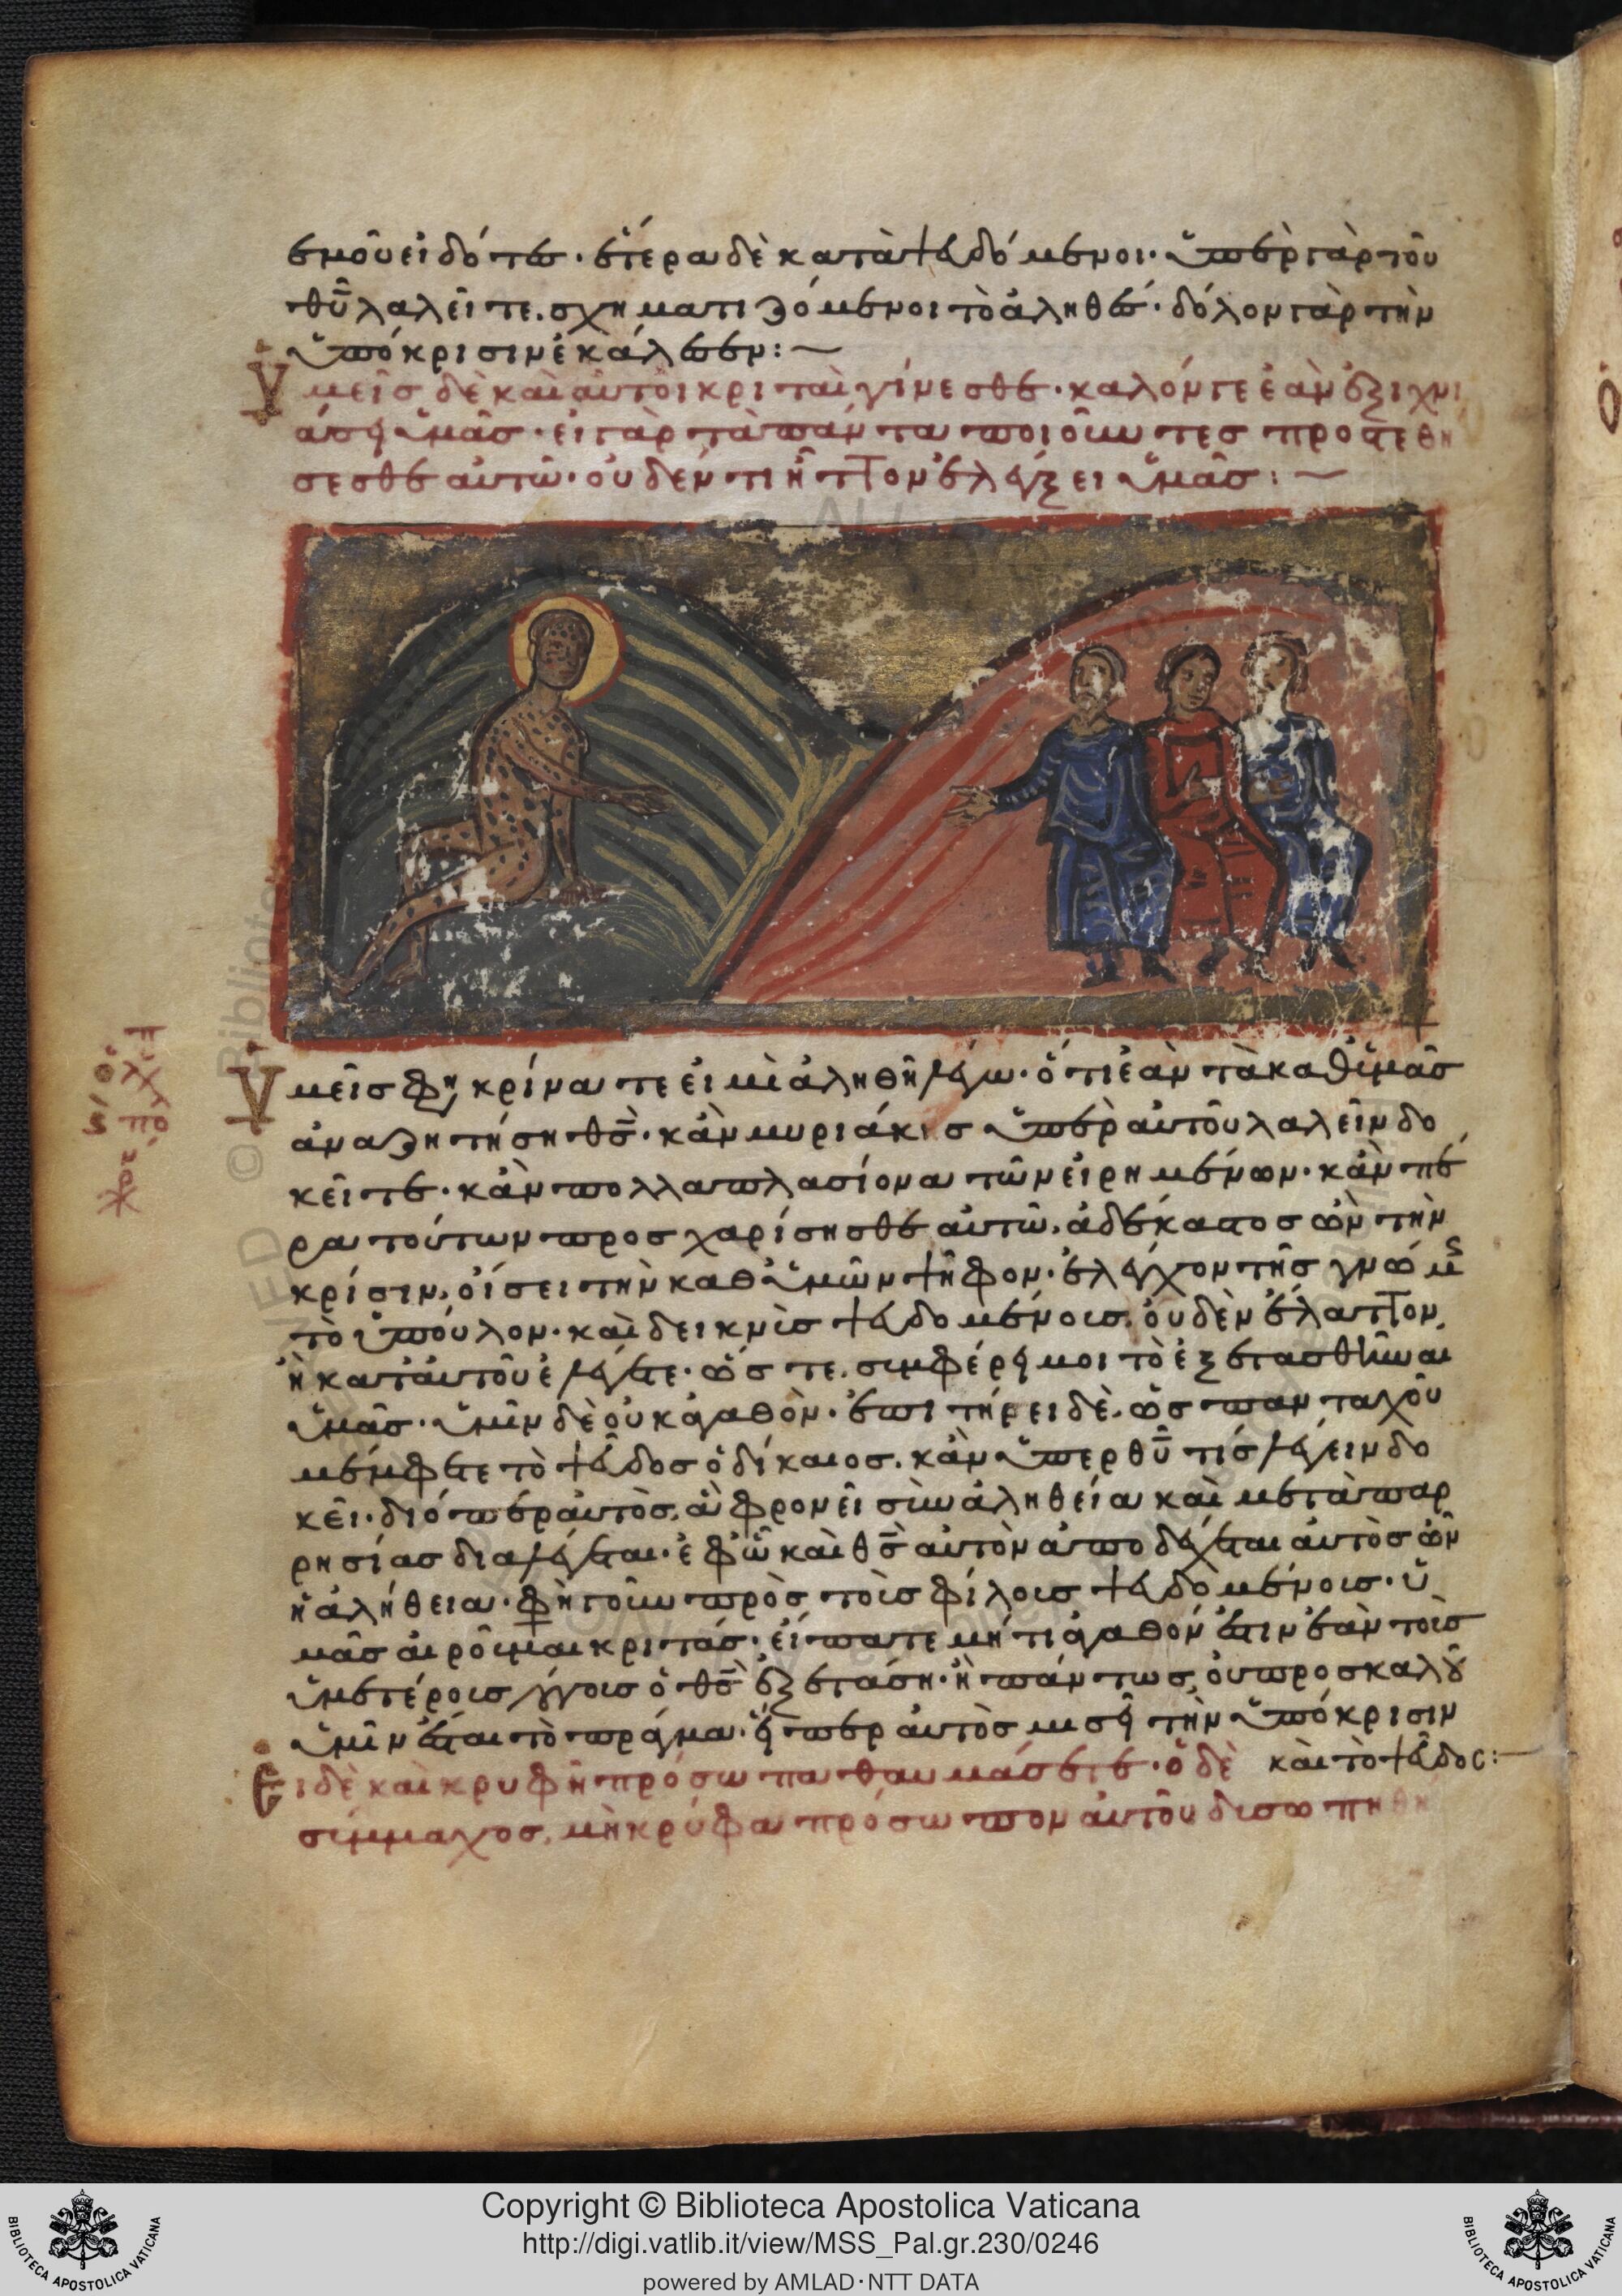 ἐνοῦ εἰδότες· ἕτερα δὲ καταψευδόμενοι· ὑπὲρ γὰρ τοῦ
θυ λαλεῖτε. σχηματιζόμενοι τὸ ἀληθές· δόλον γὰρ τὴν
ὑπόκρισιν ἐκάλεσεν:~
Ὑμεῖς δὲ καὶ αὐτοὶ κριταὶ γίνεσθε· καλόν γε ἐὰν ἐξιχνι
άσει ὑμᾶς· εἰ γὰρ τὰ πάντα ποιοῦντες προστεθή
σεσθε αὐτῶ· οὐδέν τι ἧττον ἐλέγξει ὑμᾶς:~
Ὑμεῖς κρίνατε εἰ μὴ ἀληθῆ λέγω· ὅτι ἐὰν τὰ καθ' ὑμᾶς
ἀναζητήση θς· κἂν μυριάκις ὑπὲρ αὐτοῦ λαλεῖν δο
κεῖτε· κἂν πολλαπλασίονα τῶν εἰρημένων· κἂν πέ
ρα τούτων προσχαρίσησθε αὐτῶ. ἀδέκαστος ὢν τὴν
κρίσιν. οἴσει τὴν καθ' ὑμῶν ψῆφον· ἐλέγχον τῆς γνώμης
τὸ ὕπουλον· καὶ δεικνὺς ψευδομένοις. οὐδὲν ἔλαττον
ἢ κατ' αὐτοῦ ἐλέγετε· ὥστε. συμφέρει μοι τὸ ἐξετασθῆναι
ὑμᾶς· ὑμῖν δὲ οὐκ ἀγαθόν· ἐπιτήρει δὲ. ὡς πανταχοῦ
μέμφεται τὸ ψεῦδος ὁ δίκαιος. κἂν ὑπερ θυ τίς λέγειν δο
κεῖ· διόπερ αὐτὸς. ἃ φρονεῖ σὺν ἀληθεία καὶ μετὰ παρ
ρησίας διαλέγεται· ἐφ' ὧ καὶ θς αὐτὸν ἀποδέχεται αὐτὸς ὢν
ἡ ἀλήθεια· φησὶ γοῦν πρὸς τοὺς φίλους ψευδομένους· ὑ
μᾶς αἱροῦμαι κριτάς· εἴπατε μή τι ἀγαθόν ἐστιν ἐὰν τοὺς
ὑμετέρους λόγους ὁ θς ἐξετάση· ἢ πάντως οὐ προς καλοῦ
ὑμῖν ἔσται τὸ πρᾶγμα· εἴπερ αὐτὸς μισεῖ τὴν ὑπόκρισιν
καὶ τὸ ψεῦδος:~
Εἰ δὲ καὶ κρυφῆ πρόσωπα θαυμάσετε· ὁ δὲ
σύμμαχος. μὴ κρύφα πρόσωπον αὐτοῦ δυσωπηθη
Copyright © Biblioteca Apostolica Vaticana
http://digi.vatlib.it/view/MSS_Pal.gr.230/0246
powered by AMLAD·NTT DATA
BIBLIOTECA APOSTOLICA VATICANA
BIBLIOTECA APOSTOLICA VATICANA